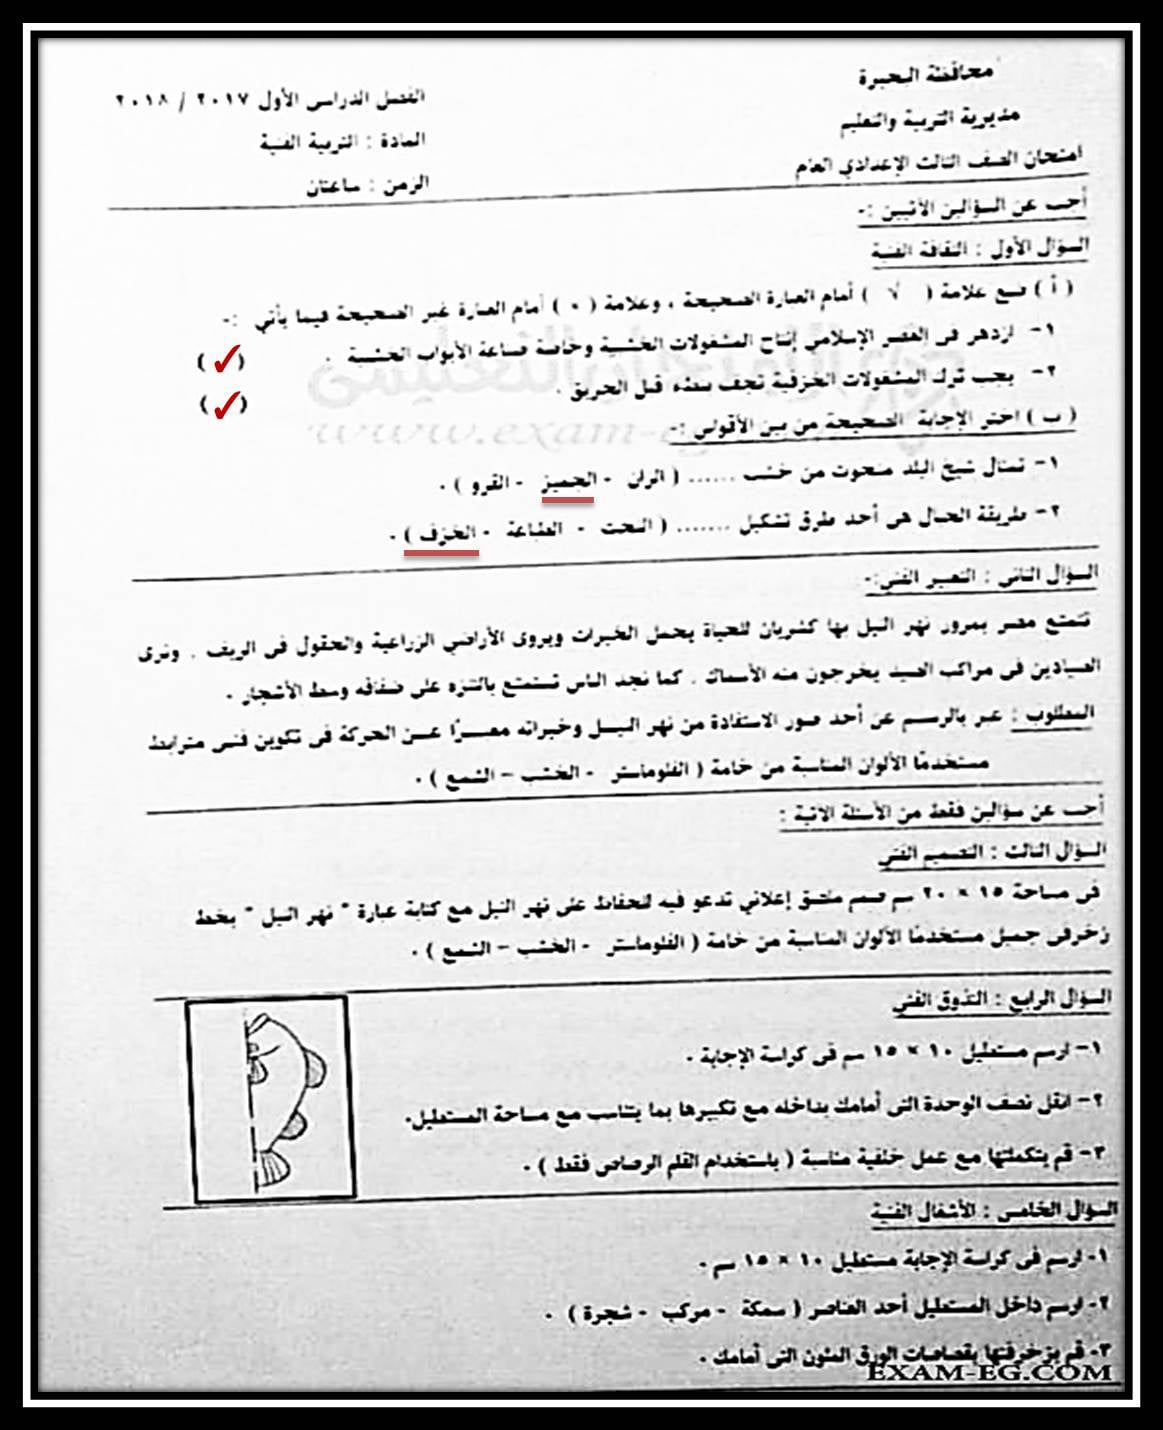 محافظة البحيرة
مديرية التربية والتعليم
امتحان الصف الثالث الإعدادي العام
الفصل الدراسى الأول ٢٠١٧ / ٢٠١٨
المادة : التربية الفنية
الزمن : ساعتان
أجب عن السؤالين الآتيين :-
السؤال الأول : الثقافة الفنية
( أ ) ضع علامة ( √ ) أمام العبارة الصحيحة ، وعلامة ( × ) أمام العبارة غير الصحيحة فيما يأتي :-
١- ازدهر فى العصر الإسلامي إنتاج المشغولات الخشبية وخاصة صناعة الأبواب الخشبية . (✓)
٢- يجب ترك المشغولات الخزفية تجف ببطء قبل الحريق . (✓)
( ب ) اختر الإجابة الصحيحة من بين الأقواس :-
١- تمثال شيخ البلد منحوت من خشب ...... ( الزان - الجميز - القرو ) .
٢- طريقة الحبال هى أحد طرق تشكيل ....... ( النحت - الطباعة - الخزف ) .
السؤال الثانى : التعبير الفنى:-
تتمتع مصر بمرور نهر النيل بها كشريان للحياة يحمل الخيرات ويروى الأراضي الزراعية والحقول فى الريف . ونرى
الصيادين فى مراكب الصيد يخرجون منه الأسماك . كما نجد الناس تستمتع بالتنزه على ضفافه وسط الأشجار .
المطلوب : عبر بالرسم عن أحد صور الاستفادة من نهر النيل وخيراته معبرًا عن الحركة فى تكوين فنى مترابط
مستخدمًا الألوان المناسبة من خامة ( الفلوماستر - الخشب – الشمع ) .
أجب عن سؤالين فقط من الأسئلة الآتية :
السؤال الثالث : التصميم الفني
فى مساحة ١٥ × ٢٠ سم صمم ملصق إعلاني تدعو فيه للحفاظ على نهر النيل مع كتابة عبارة " نهر النيل " بخط
زخرفى جميل مستخدمًا الألوان المناسبة من خامة ( الفلوماستر - الخشب – الشمع ) .
السؤال الرابع : التذوق الفني
١- ارسم مستطيل ١٠ × ١٥ سم فى كراسة الإجابة .
٢- انقل نصف الوحدة التى أمامك بداخله مع تكبيرها بما يتناسب مع مساحة المستطيل.
٣- قم بتكملتها مع عمل خلفية مناسبة ( باستخدام القلم الرصاص فقط ) .
السؤال الخامس : الأشغال الفنية
١- ارسم فى كراسة الإجابة مستطيل ١٠ × ١٥ سم .
٢- ارسم داخل المستطيل أحد العناصر ( سمكة - مركب - شجرة ) .
٣- قم بزخرفتها بقصاصات الورق الملون التى أمامك .
EXAM-EG.COM